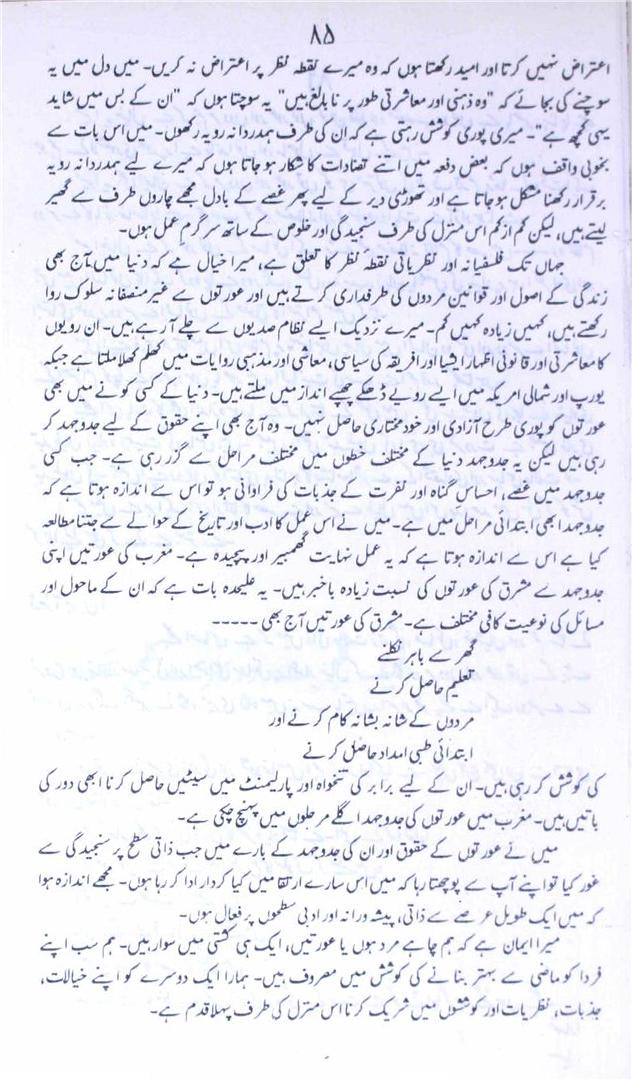 ۸۵
اعتراض نہیں کرتا اور امید رکھتا ہوں کہ وہ میرے نقطہ نظر پر اعتراض نہ کریں۔ میں دل میں یہ
سوچنے کی بجائے کہ "وہ ذہنی اور معاشرتی طور پر نابالغ ہیں" یہ سوچتا ہوں کہ "ان کے بس میں شاید
یہی کچھ ہے"۔ میری پوری کوشش رہتی ہے کہ ان کی طرف ہمدردانہ رویہ رکھوں۔ میں اس بات سے
بخوبی واقف ہوں کہ بعض دفعہ میں اتنے تضادات کا شکار ہو جاتا ہوں کہ میرے لیے ہمدردانہ رویہ
برقرار رکھنا مشکل ہو جاتا ہے اور تھوڑی دیر کے لیے پھر غصے کے بادل مجھے چاروں طرف سے گھیر
لیتے ہیں، لیکن کم از کم اس منزل کی طرف سنجیدگی اور خلوص کے ساتھ سرگرم عمل ہوں۔
جہاں تک فلسفیانہ اور نظریاتی نقطہ نظر کا تعلق ہے، میرا خیال ہے کہ دنیا میں آج بھی
زندگی کے اصول اور قوانین مردوں کی طرفداری کرتے ہیں اور عورتوں سے غیر منصفانہ سلوک روا
رکھتے ہیں، کہیں زیادہ کہیں کم۔ میرے نزدیک ایسے نظام صدیوں سے چلے آ رہے ہیں۔ ان رویوں
کا معاشرتی اور قانونی اظہار ایشیا اور افریقہ کی سیاسی، معاشی اور مذہبی روایات میں کھلم کھلا ملتا ہے جبکہ
یورپ اور شمالی امریکہ میں ایسے رویے ڈھکے چھپے انداز میں ملتے ہیں۔ دنیا کے کسی کونے میں بھی
عورتوں کو پوری طرح آزادی اور خود مختاری حاصل نہیں۔ وہ آج بھی اپنے حقوق کے لیے جدوجہد کر
رہی ہیں لیکن یہ جدوجہد دنیا کے مختلف خطوں میں مختلف مراحل سے گزر رہی ہے۔ جب کسی
جدوجہد میں غصے، احساس گناہ اور نفرت کے جذبات کی فراوانی ہو تو اس سے اندازہ ہوتا ہے کہ
جدوجہد ابھی ابتدائی مراحل میں ہے۔ میں نے اس عمل کا ادب اور تاریخ کے حوالے سے جتنا مطالعہ
کیا ہے اس سے اندازہ ہوتا ہے کہ یہ عمل نہایت گھمبیر اور پیچیدہ ہے۔ مغرب کی عورتیں اپنی
جدوجہد سے مشرق کی عورتوں کی نسبت زیادہ باخبر ہیں۔ یہ علیحدہ بات ہے کہ ان کے ماحول اور
مسائل کی نوعیت کافی مختلف ہے۔ مشرق کی عورتیں آج بھی -----
گھر سے باہر نکلنے
تعلیم حاصل کرنے
مردوں کے شانہ بشانہ کام کرنے اور
ابتدائی طبی امداد حاصل کرنے
کی کوشش کر رہی ہیں۔ ان کے لیے برابر کی تنخواہ اور پارلیمنٹ میں سیٹیں حاصل کرنا ابھی دور کی
باتیں ہیں۔ مغرب میں عورتوں کی جدوجہد اگلے مرحلوں میں پہنچ چکی ہے۔
میں نے عورتوں کے حقوق اور ان کی جدوجہد کے بارے میں جب ذاتی سطح پر سنجیدگی سے
غور کیا تو اپنے آپ سے پوچھتا رہا کہ میں اس سارے ارتقا میں کیا کردار ادا کر رہا ہوں۔ مجھے اندازہ ہوا
کہ میں ایک طویل عرصے سے ذاتی، پیشہ ورانہ اور ادبی سطحوں پر فعال ہوں۔
میرا ایمان ہے کہ ہم چاہے مرد ہوں یا عورتیں، ایک ہی کشتی میں سوار ہیں۔ ہم سب اپنے
فردا کو ماضی سے بہتر بنانے کی کوشش میں مصروف ہیں۔ ہمارا ایک دوسرے کو اپنے خیالات،
جذبات، نظریات اور کوششوں میں شریک کرنا اس منزل کی طرف پہلا قدم ہے۔